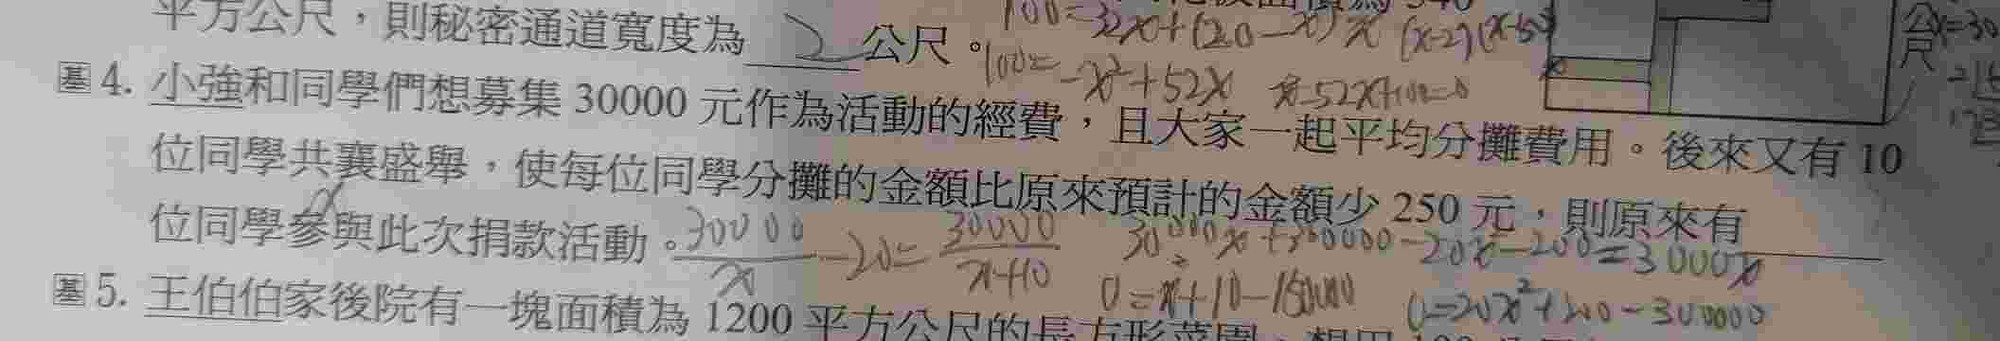 平方公尺，則秘密通道寬度為 2 公尺。
100=32x+(20-x)x (x-2)(x-50)
100=-x²+52x x²-52x+100=0
公尺
x=30
基 4. 小強和同學們想募集 30000 元作為活動的經費，且大家一起平均分攤費用。後來又有 10
位同學共襄盛舉，使每位同學分攤的金額比原來預計的金額少 250 元，則原來有
位同學參與此次捐款活動。
x
30000/x -20= 30000/x+10
30000x+300000-20x-200=30000x
0=x+10-15000
0=20x²+200-300000
基 5. 王伯伯家後院有一塊面積為 1200 平方公尺的長方形菜園，想用 100